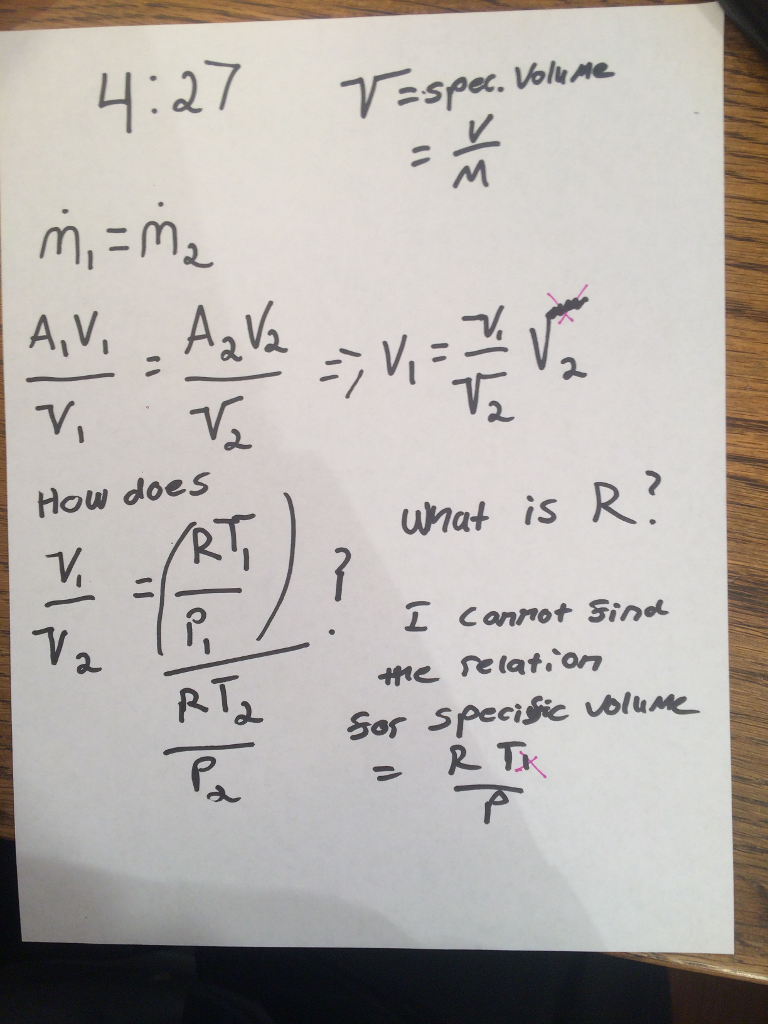 4:27
V = spec. volume
= V/M
ṁ₁ = ṁ₂
A₁V₁/V₁ = A₂V₂/V₂ => V₁ = V₁/V₂ V₂
How does
V₁/V₂ = (RT₁/P₁)/(RT₂/P₂) ?
What is R?
I cannot find
the relation
for specific volume
= RT/P